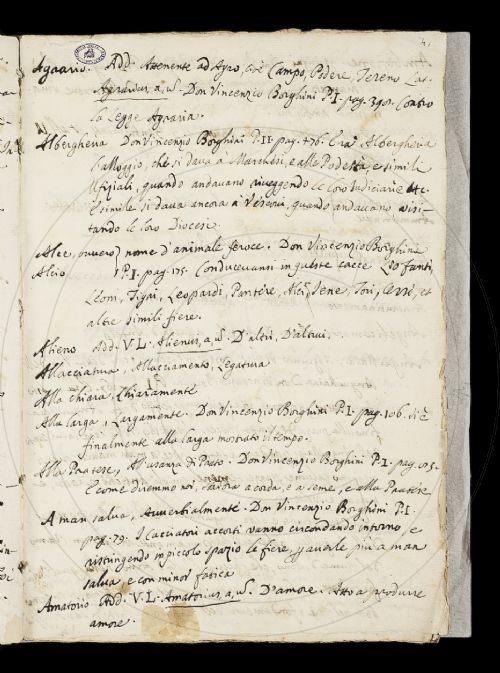 4.
Agrario. Add. Attenente ad Agro, cioè Campo, Podere, Tereno Lat.
Agrarius, a, um. Don Vincenzio Borghini P.I. pag. 398. Contro
la Legge Agraria.
Albergheria Don Vincenzio Borghini P. II. pag. 476. Era Albergheria
l'alloggio, che si dava a Marchesi, e alle Podestà, e simili
Ufiziali, quando andavano riveggendo le loro Iudiciarie etc.
E simile si dava ancora a' Vescovi, quando andavano visi-
tando le loro Diocesi.
Alce, ovvero nome d'animale feroce. Don Vincenzio Borghini
Alcio P.I. pag. 175. Conducevansi in queste cacce Liofanti,
Leoni, Tigri, Leopardi, Pantere, Alci, Iene, Tori, Cervi, et
altre simili fiere.
Alieno Add. V.L. Alienus, a, um. D'altri, D'altrui.
Allacciatura, Allacciamento, Legatura
Alla chiara, Chiaramente
Alla larga, Largamente. Don Vincenzio Borghini P.I. pag. 106. di è
finalmente alla larga mostrato il tempo.
Alla Pratese, All'usanza di Prato. Don Vincenzio Borghini P.I. pag.
E come diremmo noi, lavora a corda, e a seme, e alla Pratese
A man salva, Avverbialmente. Don Vincenzio Borghini P.I.
pag. 79. I Cacciatori accorti vanno circondando intorno, e
ristringendo in piccolo spazio le fiere, p averle più a man
salva, e con minor fatica
Amatorio Add. V.L. Amatorius, a, um. D'amore. Atto a produrre
amore.